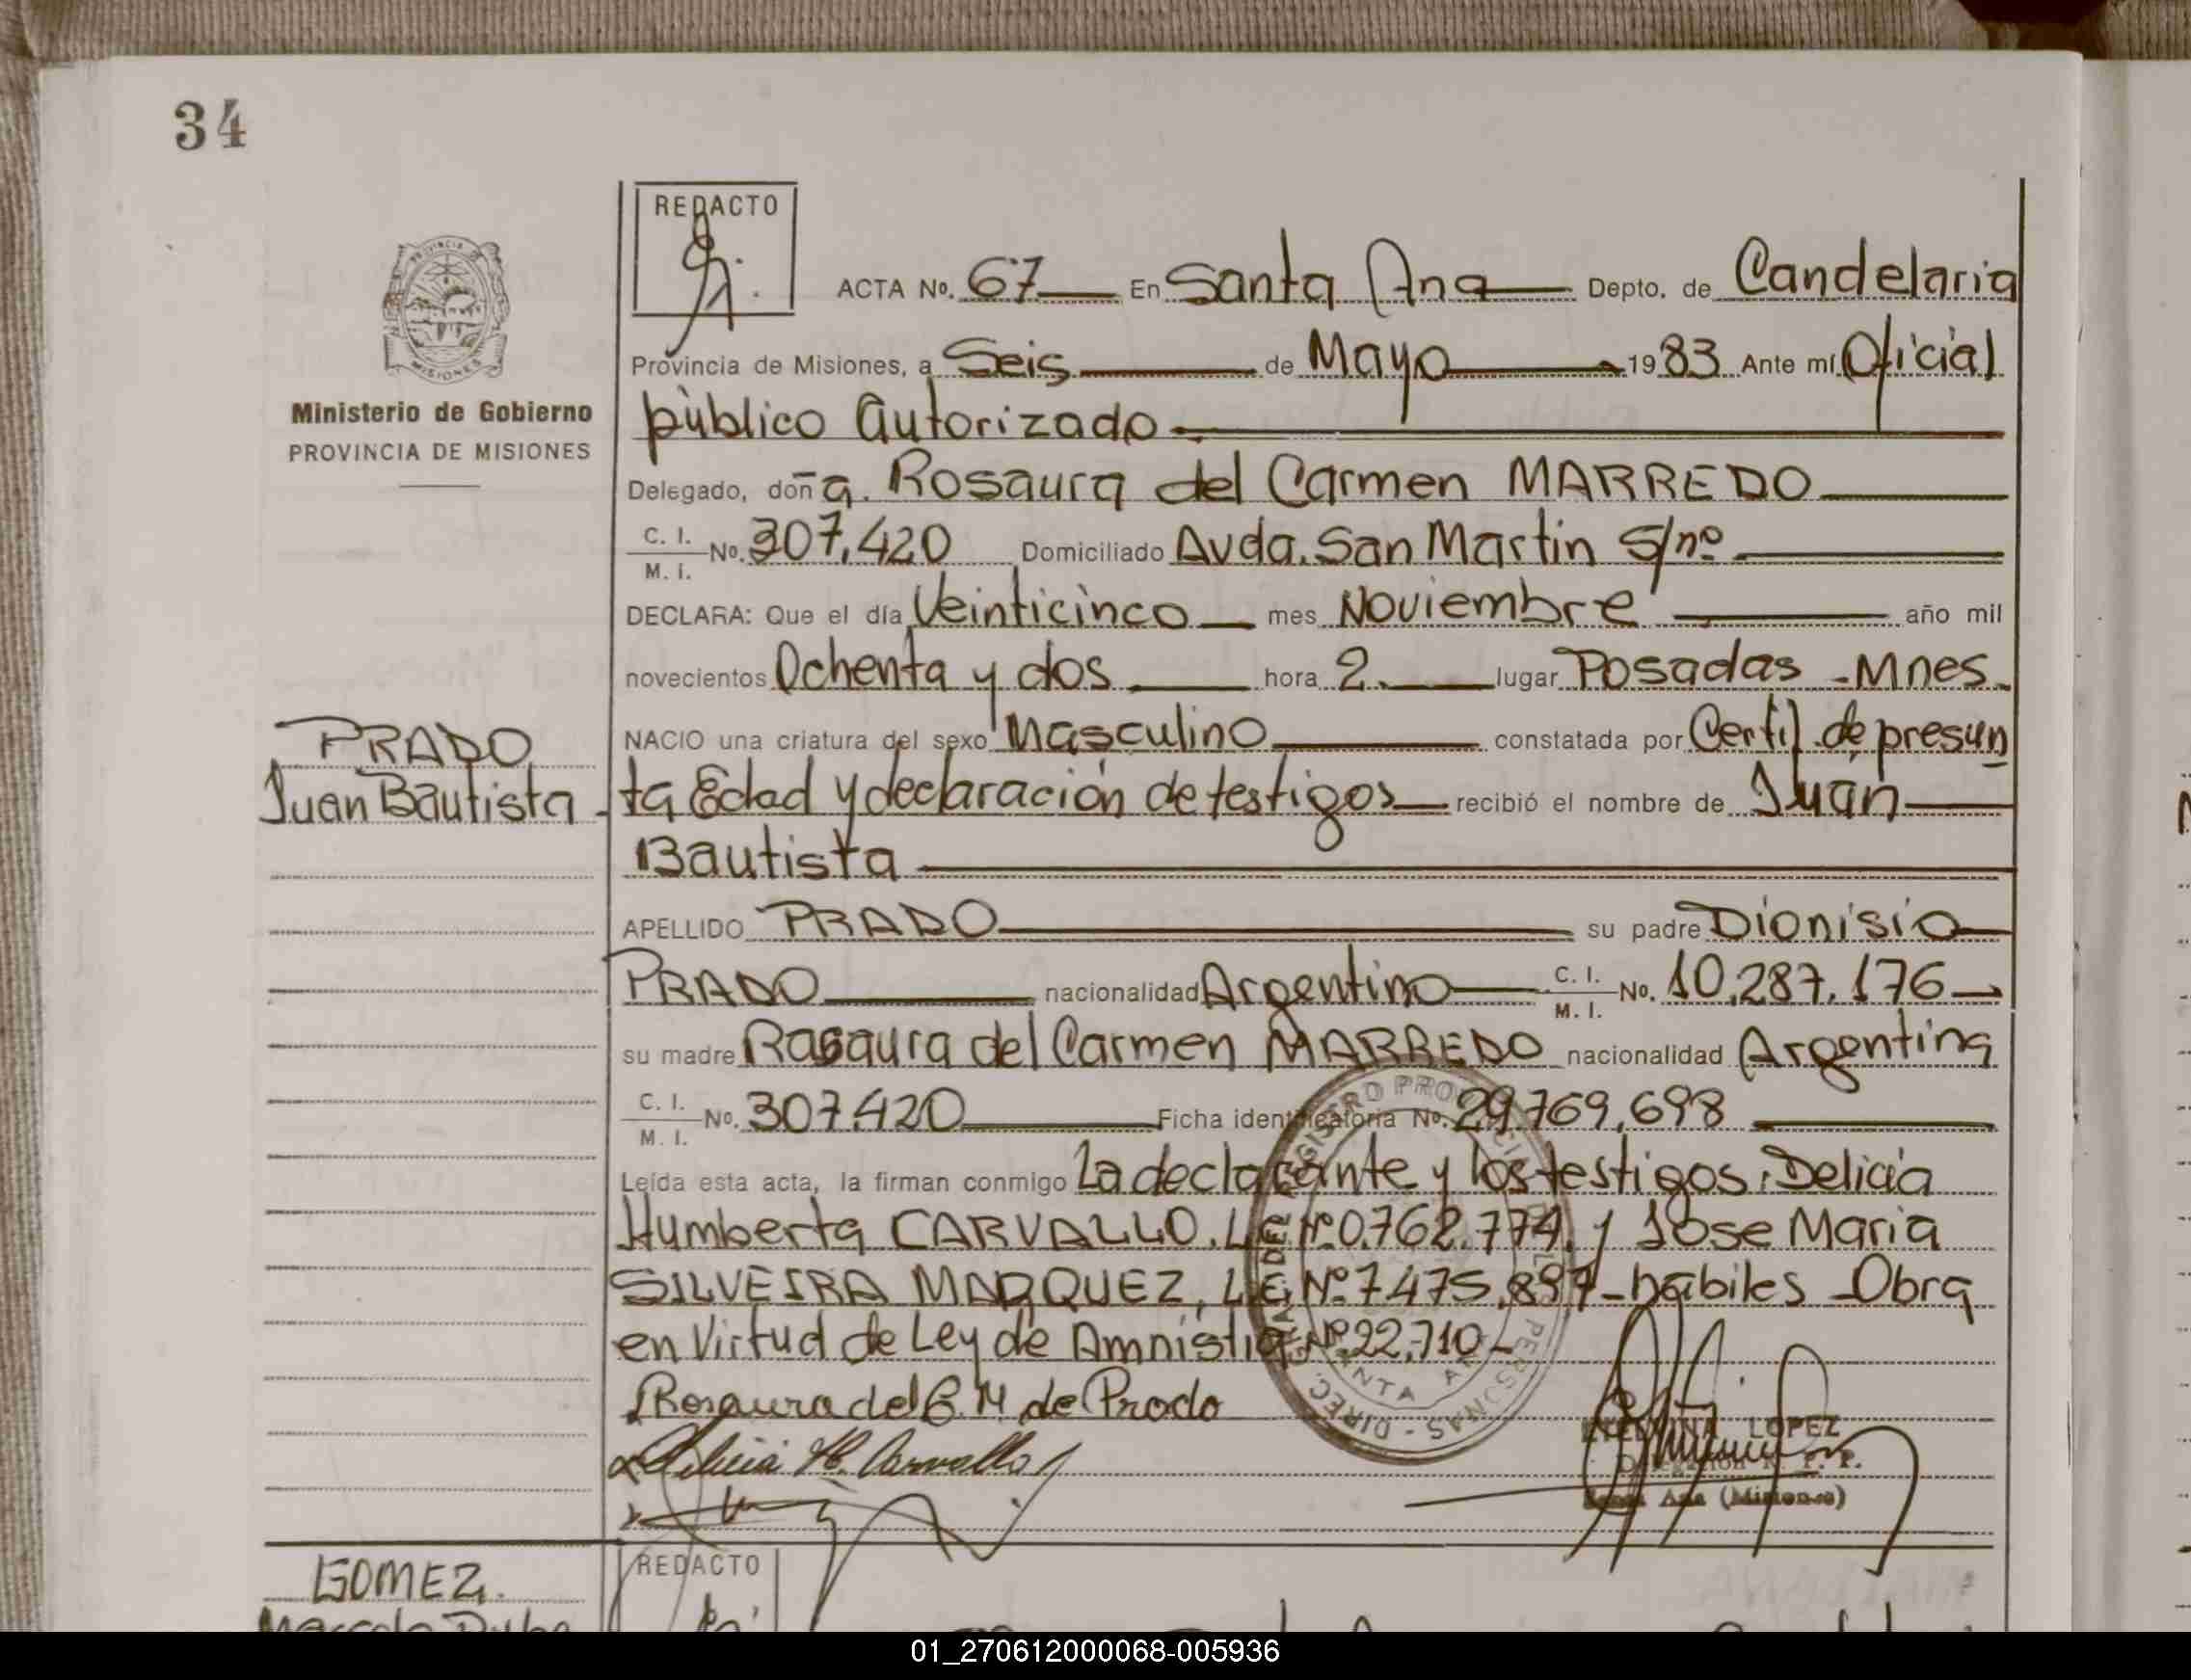 34
REDACTO
ACTA No. 67 En Santa Ana Depto. de Candelaria
Provincia de Misiones, a Seis de Mayo 1983 Ante mí Oficial
público Autorizado
Ministerio de Gobierno
PROVINCIA DE MISIONES
Delegado, doña. Rosaura del Carmen MARREDO
C. I. / M. I. No. 307.420 Domiciliado Avda. San Martin S/nº
DECLARA: Que el día Veinticinco mes Noviembre año mil
novecientos Ochenta y dos hora 2. lugar Posadas - Mnes.
NACIO una criatura del sexo Masculino constatada por Certif. de presun
PRADO
Juan Bautista
ta Edad y declaración de testigos recibió el nombre de Juan
Bautista
APELLIDO PRADO su padre Dionisio
PRADO nacionalidad Argentino C. I. / M. I. No. 10.287.176
su madre Rasaura del Carmen MARREDO nacionalidad Argentina
C. I. / M. I. No. 307.420 Ficha identificatoria No. 29.769.698
Leída esta acta, la firman conmigo La declarante y los testigos, Delicia
Humberta CARVALLO. L.C. Nº 0.762.774. y Jose Maria
SILVEIRA MARQUEZ, L.E. Nº 7.475.897 - hábiles - Obra
en Virtud de Ley de Amnistia Nº 22.710 -
Rosaura del C. M de Prado
Delicia H. Carvallo
LOPEZ
Santa Ana (Misiones)
GOMEZ.
REDACTO
01_270612000068-005936